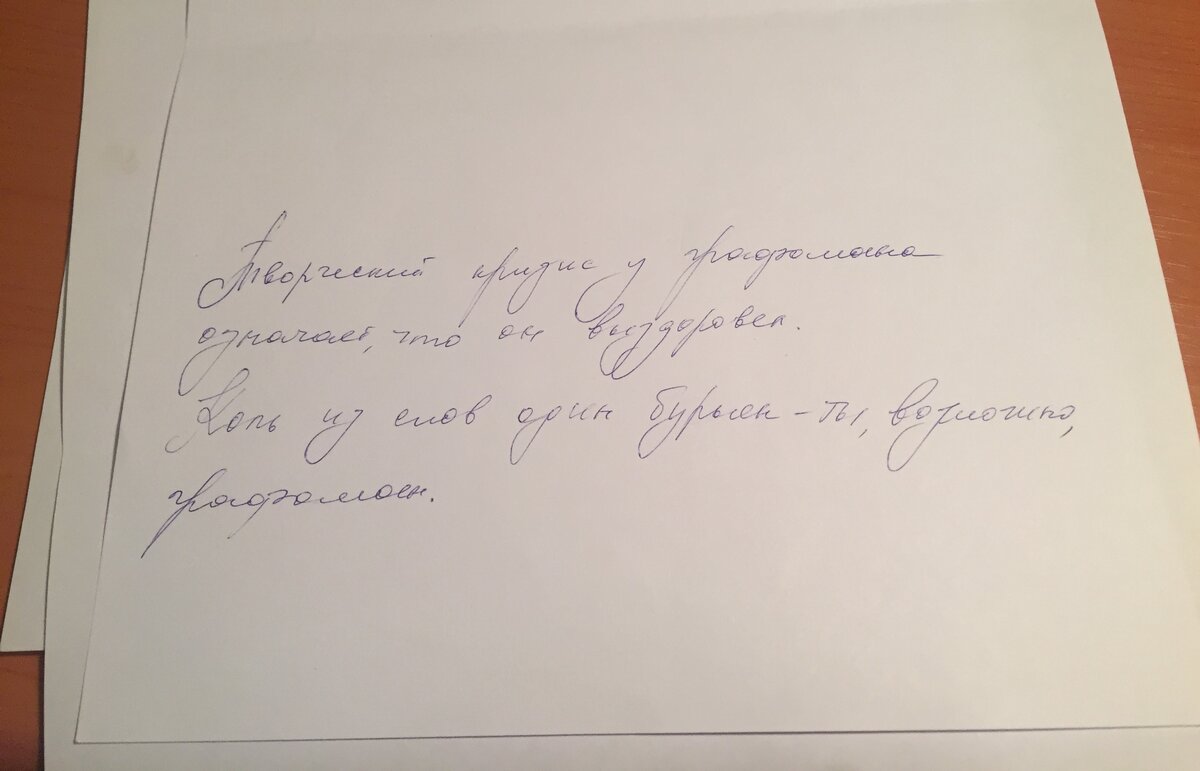 Творческий кризис у графомана
означает, что он выздоровел.
Коль из слов один бурьян - ты, возможно,
графоман.